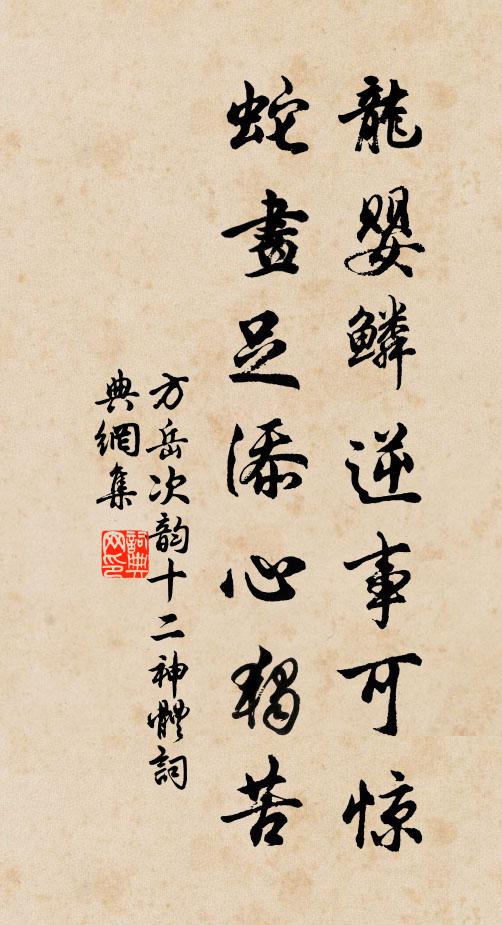 龍嬰鱗逆事可惊
蛇畫足添心獨苦
方岳次韵十二神體詞
典網集
詞典
网印